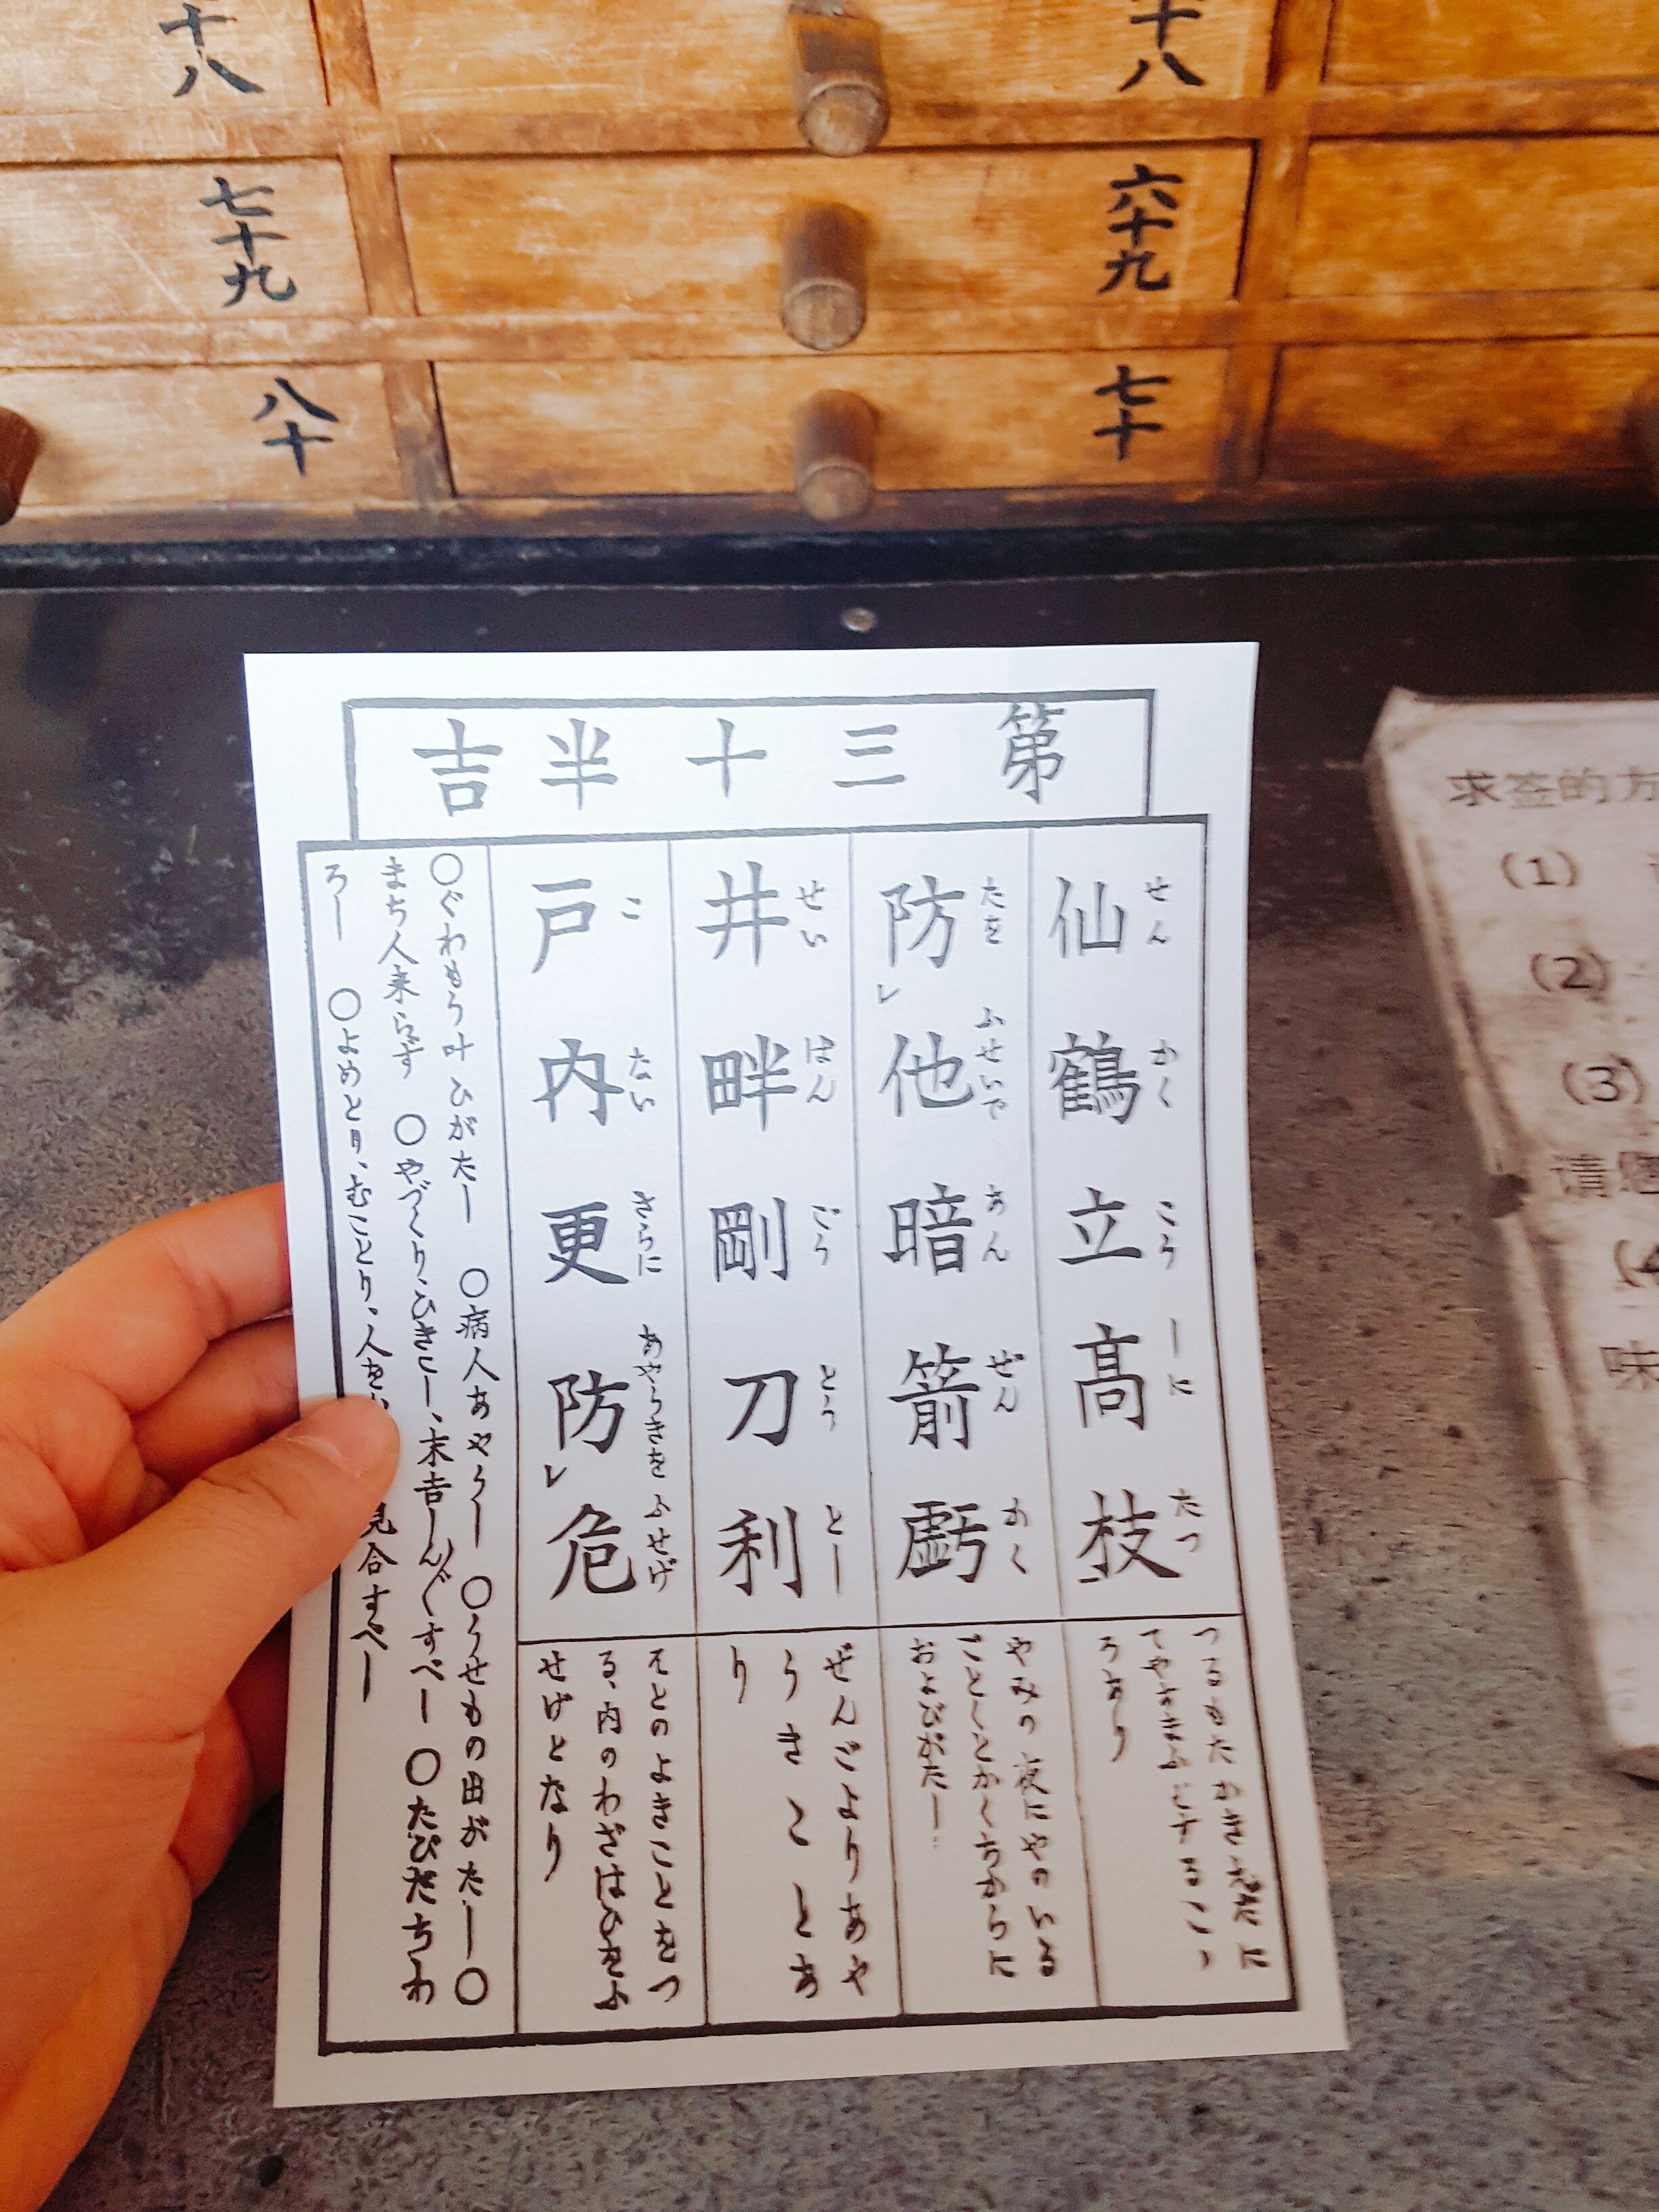 十八
十八
七十九
六十九
八十
七十
第三十半吉
仙鶴立高枝
せんかくこうしにたつ
防レ他暗箭虧
たをふせいやあんぜんかく
井畔剛刀利
せいはんごうとうとし
戸内更防レ危
こないさらにあやうきをふせげ
つるもたかきゑだに
ろあり
やみの夜にやのいる
ごとくとかく
およびがたし
ぜんごよりあや
うきことあ
り
そとのよきことをつ
る、内のわざはひをふ
せげとなり
○ぐわもう叶ひがたし ○病人あやうし ○うせもの出がたし ○
まち人来らず ○やづくり、ひきこし、末吉しんぐすべし ○たびだちわ
ろし ○よめとり、むことり、人を 見合すべし
求签的方
(1)
(2)
(3)
请
味